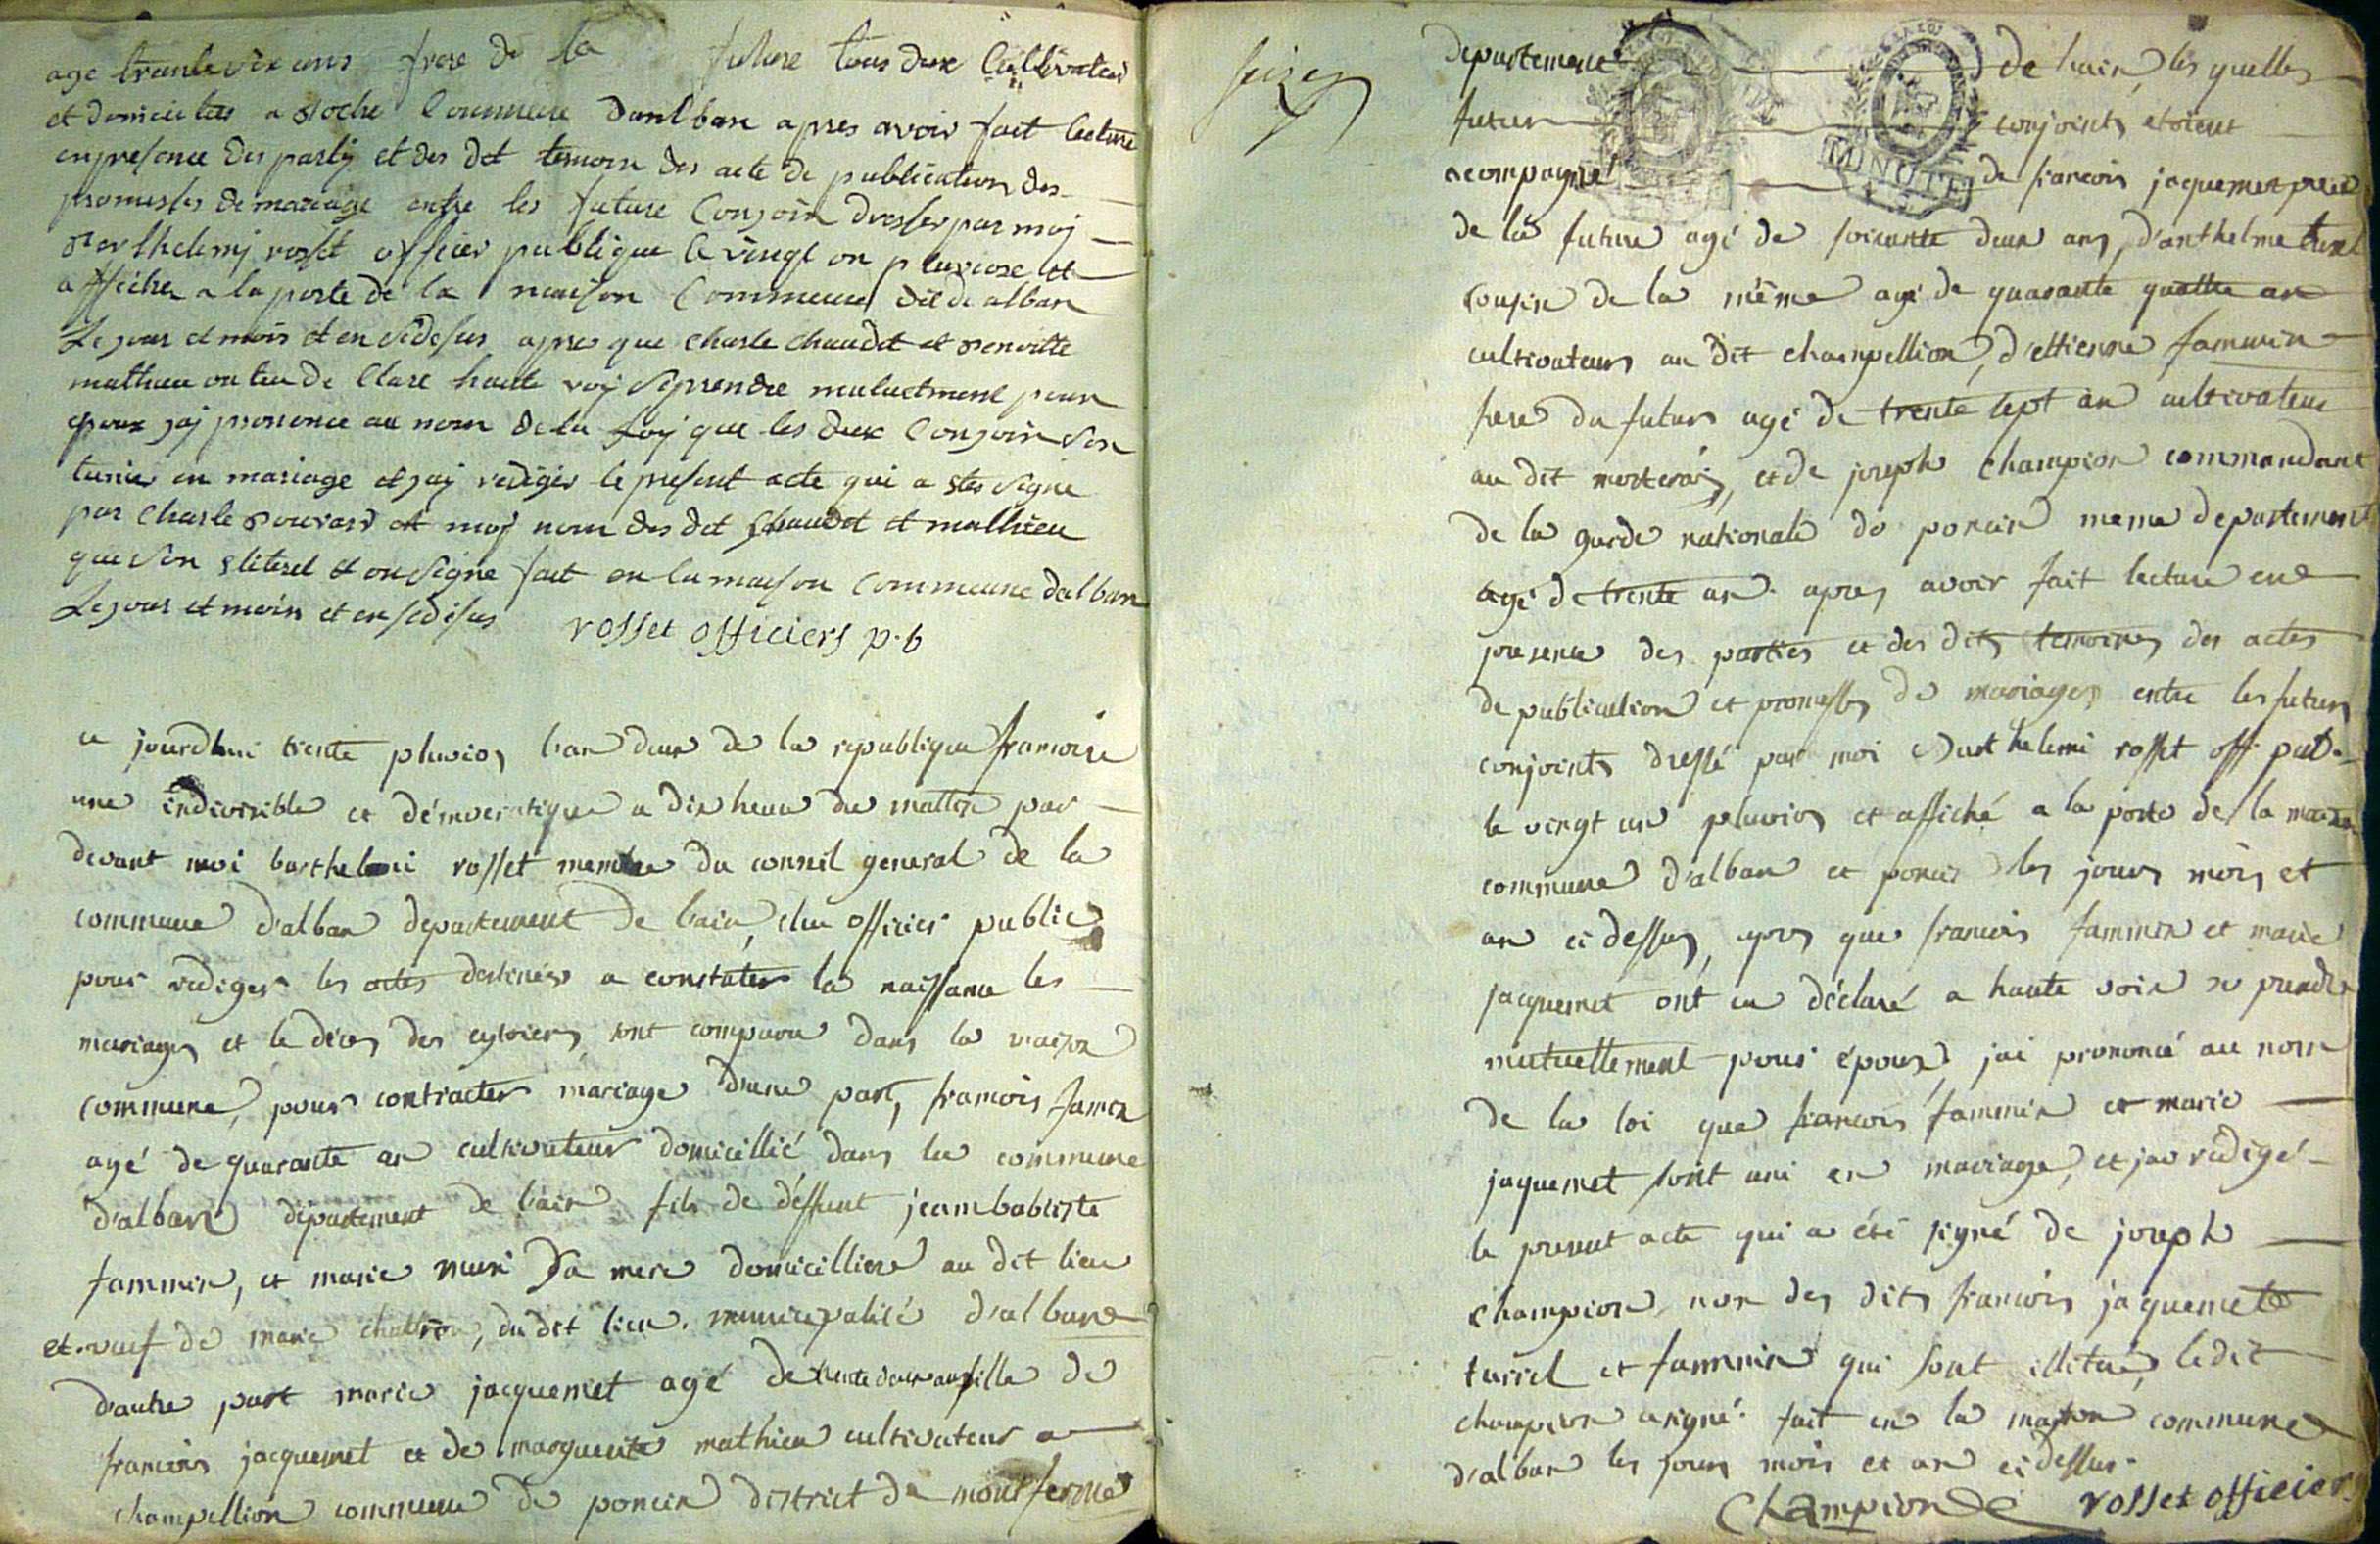 age trante six ans frere de la future tous deux Cultivateur
et domicilies a Roche Commune dAnlban apres avoir fait lecture
en presence des partij et des dit temoin des acte de publication des
promesses de mariage entre les future Conjoin dresser par moj
Barthelemj rosset officier publique le vingt on pluviose et
afficher a la porte de la maison Commune dit de alban
Le jour et mois et en sidesus apres que Charle Chaudet et Benoitte
mathieu on
haute voij se prendre mutuelment pour
epoux jaj prononce au nom de la loij que les deux Conjoin son
tunis en mariage et jaij rediger le present acte qui a etes signe
par Charle et moj nom des dit Chaudet et mathieu
que son Iliterel et on signe fait en la maison Commune dalban
Le jour et mois et en sidesus rosset officiers p.b
ce jourdhui trente pluvios l'an deux de la republique francoise
une indivisible et démocratique a dix heure du mattin par
devant moi barthelemi rosset membre du conseil general de la
commune d'alban departement de l'ain, elu officier public
pour rediger les actes destinés a constater la naissance les
mariages et le déces des cytoiens sont comparu dans la maison
commune, pour contracter mariage d'une part, francois famin
agé de quarante an cultivateur domicillié dans la commune
d'alban département de l'ain fils de déffunt jeambabtiste
fammin, et marie muri Sa mere domicilliere au dit lieu
et veuf de marie chatron, du dit lieu. municipalité d'albane
d'autre part marie jacquemet agé de trente deux ans fille de
francois jacquemet et de marguerite mathieu cultivateur a
champellion commune de poncin district de mont ferme
seize
departement de l'ain, les quelles
futur conjoints etoient
acompagné de francois jaquemet pere
MINUTE
de la future agé de soixante deux ans, d'anthelme turrel
cousin de la même agé de quarante quattre an
cultivateurs au dit champellion, d'ettienne fammin
frere du futur agé de trente sept an cultivateur
au dit morterai, et de joseph Champion commandant
de la garde nationale de poncin meme departement
agé de trente an. apres avoir fait lecture en
presence des parties et des dits temoins des actes
de publication et promesses de mariages entre les futurs
conjoints dressé par moi Barthelemi rosset offi. pub.
le vingt un pluvios et affiché a la porte de la maison
commune d'alban et poncin les jours mois et
an ci dessus, apres que francois fammin et marie
jacquemet ont eu déclaré a haute voix se prendre
mutuellement pour époux, jai prononcé au nom
de la loi que francois fammin et marie
jaquemet sont uni en mariage, et jai rédigé
le present acte qui a été signé de joseph
champion, non des dits francois jaquemet
turrel et fammin qui sont illitué, ledit
champion a signé. fait en la maison commune
d'alban les jours mois et an ci dessus.
Champion rosset officier